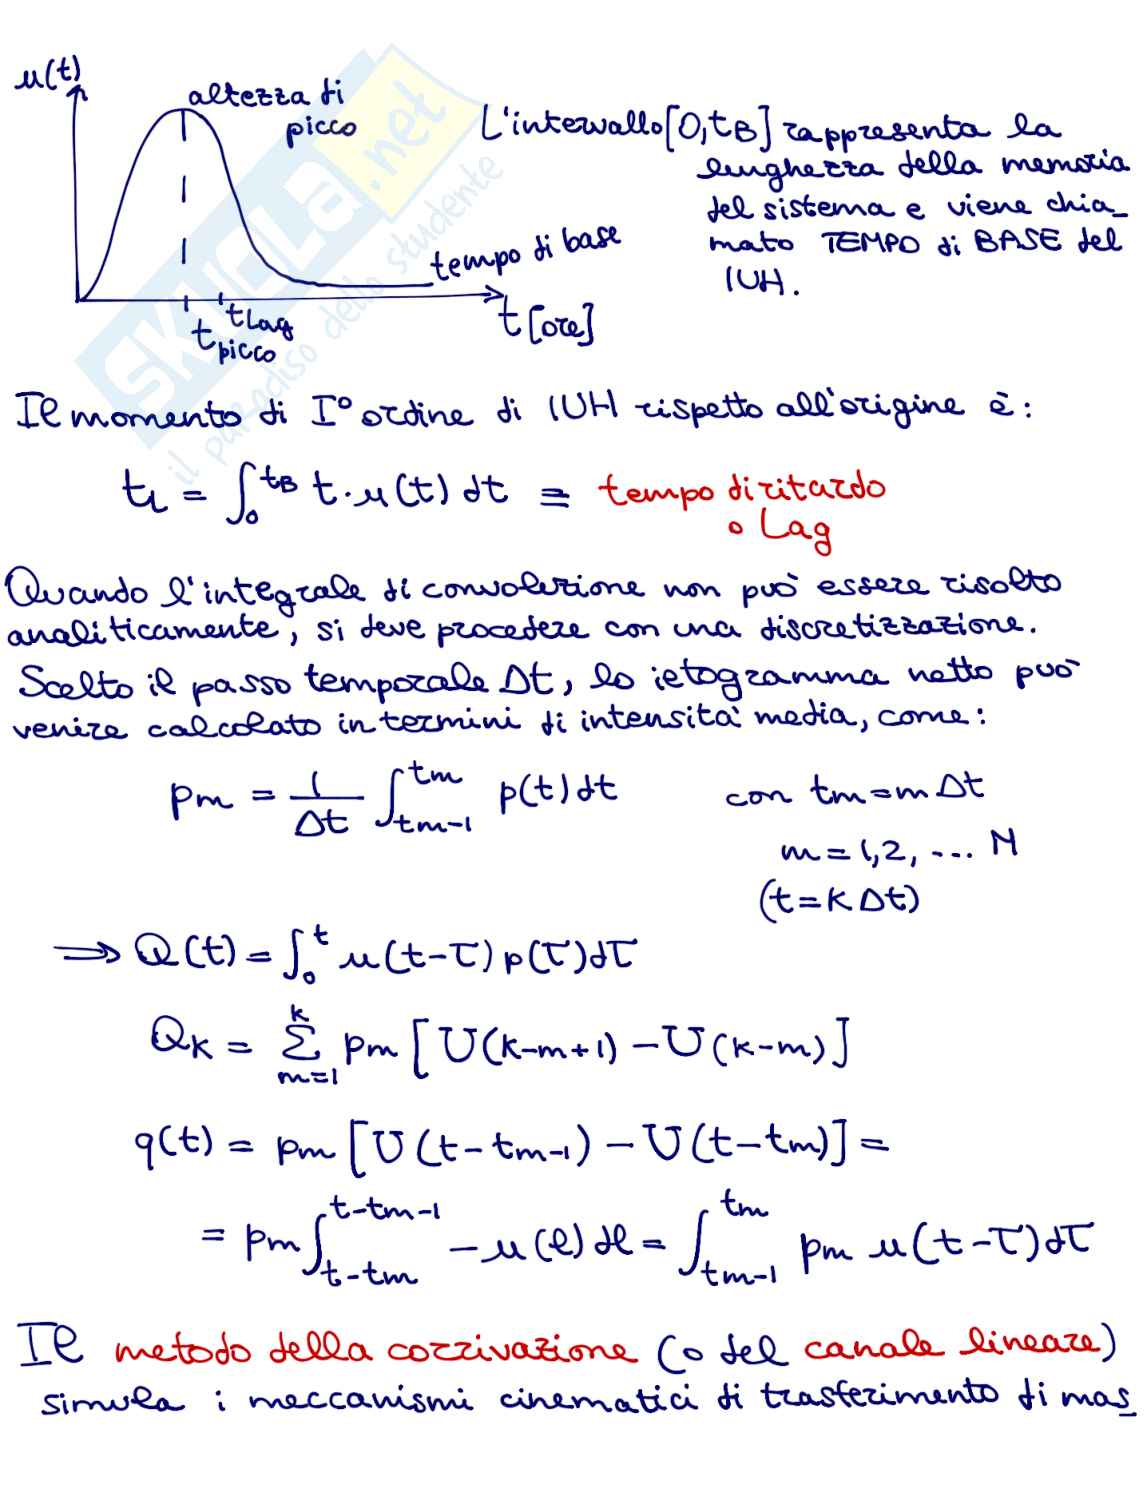 u(t)
altezza di
picco
tempo di base
tLag
tpicco
t [ore]
L'intervallo [0,tB] rappresenta la
lunghezza della memoria
del sistema e viene chia_
mato TEMPO di BASE del
IUH.
SKUOLA.net
il paradiso dello studente
Il momento di I° ordine di IUH rispetto all'origine è:
tL = ∫₀^tB t·u(t) dt ≡ tempo di ritardo
o Lag
Quando l'integrale di convoluzione non può essere risolto
analiticamente, si deve procedere con una discretizzazione.
Scelto il passo temporale Δt, lo ietogramma netto può
venire calcolato in termini di intensità media, come:
pm = 1/Δt ∫_{tm-1}^{tm} p(t) dt con tm=mΔt
m = 1,2, ... N
(t=KΔt)
⇒ Q(t) = ∫₀^t u(t-τ) p(τ)dτ
QK = Σ_{m=1}^{k} pm [U(k-m+1) - U(k-m)]
q(t) = pm [U(t-tm-1) - U(t-tm)] =
= pm ∫_{t-tm}^{t-tm-1} -u(l) dl = ∫_{tm-1}^{tm} pm u(t-τ)dτ
Il metodo della corrivazione (o del canale lineare)
simula i meccanismi cinematici di trasferimento di mas_